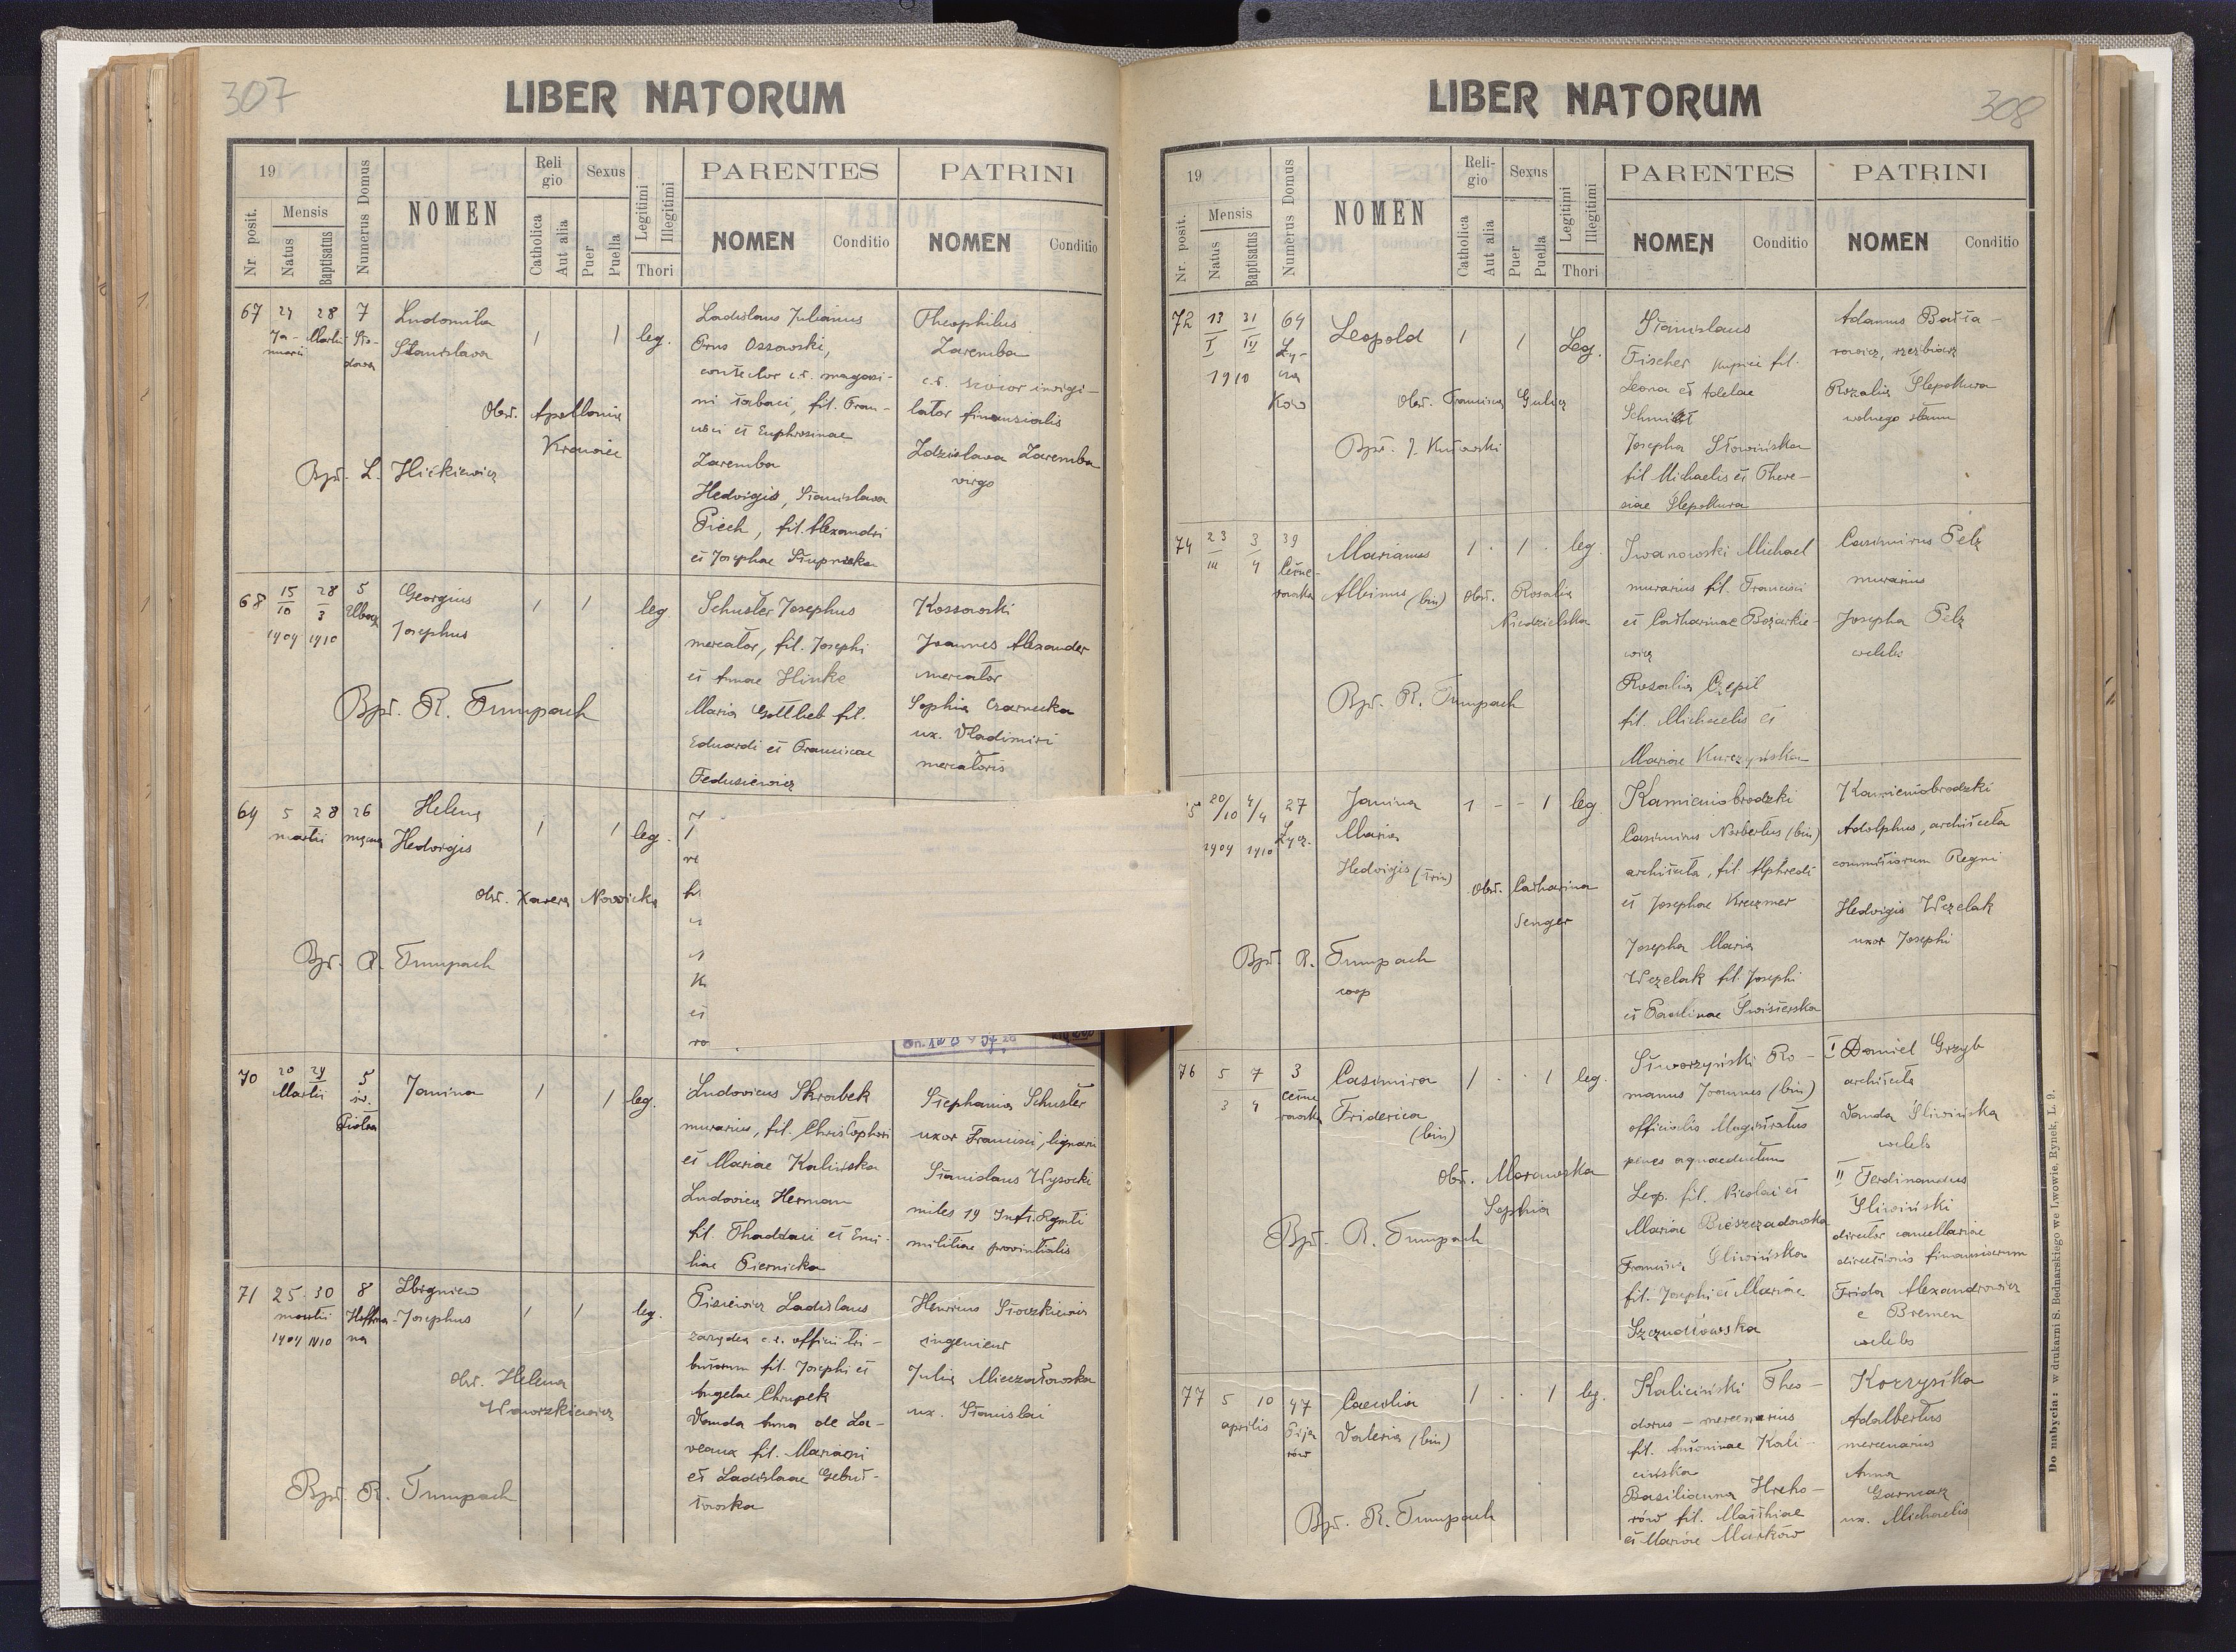 307
LIBER NATORUM
19
Nr. posit.
Mensis
Natus
Baptisatus
Numerus Domus
NOMEN
Religio
Catholica
Aut alia
Sexus
Puer
Puella
Legitimi
Illegitimi
Thori
PARENTES
NOMEN
Conditio
PATRINI
NOMEN
Conditio
67 28 7
Martii
Stanislava
1 1 leg.
Obst. Apollonia
Bpt. L.
Ladislaus Julianus
Ossowski,
c.r. magazi-
ni tabaci, fil. Fran-
cisci et Euphrosinae
Zaremba
Hedvigis, Stanislava
Piech, fil. Alexandri
et Josephae
Theophilus
Zaremba
lator finansialis
Zdzislava Zaremba
virgo
68 15/10 28/3 5
1909 1910
Georgius
Josephus
1 1 leg
Bpt. R. Trumpach
Schuster Josephus
mercator, fil. Josephi
et Annae Hinke
Maria Gottlieb fil.
Eduardi et Franciscae
Fedusiewicz
Kossowski
Joannes Alexander
mercator
Sophia Czarnecka
ux. Vladimiri
mercatoris
69 5 28 26
martii
Helena
Hedvigis
1 1 leg.
Obst. Xavera Nowicka
Bpt. R. Trumpach
70 20 29 5
Martii św.
Piotra
Janina
1 1 leg.
Ludovicus Skrabek
murarius, fil. Christophori
et Mariae Kalińska
Ludovica Herman
fil. Thaddaei et Emi-
liae Piernicka
Stephania Schuster
uxor Francisci, lignarii
Stanislaus Wysocki
miles 19 Inft. Rgmti
militiae provintialis
71 25 30 8
martii
1909 1910
Zbigniew
Josephus
1 1 leg.
Obst. Helena
Waworzkiewicz
Bpt. R. Trumpach
Pisiewicz Ladislaus
fil. Josephi et
Angelae Chrupek
Vanda Anna de La-
veaux fil. Mariani
et Ladislaae Gebuł-
towska
Henricus
ingenieur
Julia
ux. Stanislai
308
LIBER NATORUM
19
Nr. posit.
Mensis
Natus
Baptisatus
Numerus Domus
NOMEN
Religio
Catholica
Aut alia
Sexus
Puer
Puella
Legitimi
Illegitimi
Thori
PARENTES
NOMEN
Conditio
PATRINI
NOMEN
Conditio
72 13 31 64
I IV Ły-
1910 cza
ków
Leopold
1 1 Leg.
Obst. Francisca
Bpt. J.
Stanislaus
Fischer kupiec fil.
Leona et Adelae
Schmidt
Josepha Słowińska
fil Michaelis et There-
siae Ślepokura
Adamus
rzeźbiarz
Rozalia Ślepokura
wolnego stanu
74 23 3 39
III 4
Marianus
Albinus (bin)
1 . 1 . leg.
Obst. Rosalia
Niedzielska
Bpt. R. Trumpach
Iwanowski Michael
murarius fil. Francisci
et Catharinae Bożarkie-
wicz
Rosalia Czepil
fil. Michaelis et
Mariae Kurczyńska
Casimirus Pelz
murarius
Josepha Pelz
celebs
20/10 4/4 27
1909 1910 Łycz.
Janina
Maria
Hedvigis (trin)
1 - - 1 leg
Obst. Catharina
Senger
Bpt. R. Trumpach
coop
Kamieniobrodzki
Casimirus Norbertus (bin)
architecta, fil. Alphredi
et Josephae Kreczmer
Josepha Maria
Wczelak fil. Josephi
et Paulinae Świsterska
Kamieniobrodzki
Adolphus, architecta
Regni
Hedvigis Wczelak
uxor Josephi
76 5 7 3
3 4
Casimira
Friderica
(bin)
1 . . 1 leg.
Obst. Morawska
Sophia
Bpt. R. Trumpach
Stworzyński Ro-
manus Joannes (bin)
officialis Magistratus
penes aquaeductum
Leop. fil. Nicolai et
Mariae Bieszczadowska
Francisca Śliwińska
fil. Josephi et Mariae
Szczudłowska
I Daniel Grzyb
architecta
Vanda Śliwińska
celebs
II Ferdinandus
Śliwiński
director cancellariae
directionis finansiarum
Frida Alexandrowicz
e Bremen
celebs
77 5 10 47
aprilis
Caecilia
Valeria (bin)
1 . . 1 leg.
Bpt. R. Trumpach
Kaliciński Theo-
dorus - mercenarius
fil. Antoninae Kali-
cińska
Basilianna Hreho-
rów fil. Matthiae
et Mariae Marków
Korzystka
Adalbertus
mercenarius
Anna
Garncarz
ux. Michaelis
Do nabycia: w drukarni S. Bednarskiego we Lwowie, Rynek, L. 9.